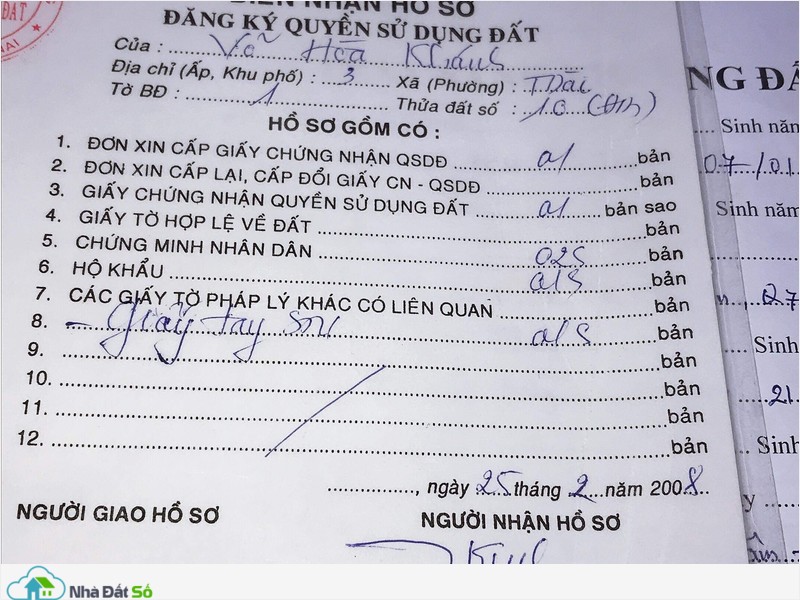 BIÊN NHẬN HỒ SƠ
ĐĂNG KÝ QUYỀN SỬ DỤNG ĐẤT
Của : Võ Hòa Khánh
Địa chỉ (Ấp, Khu phố) : 3 Xã (Phường) : T.Dài
Tờ BĐ : 1 Thửa đất số : 10
HỒ SƠ GỒM CÓ :
1. ĐƠN XIN CẤP GIẤY CHỨNG NHẬN QSDĐ 01 bản
2. ĐƠN XIN CẤP LẠI, CẤP ĐỔI GIẤY CN - QSDĐ bản
3. GIẤY CHỨNG NHẬN QUYỀN SỬ DỤNG ĐẤT 01 bản sao
4. GIẤY TỜ HỢP LỆ VỀ ĐẤT bản
5. CHỨNG MINH NHÂN DÂN 02S bản
6. HỘ KHẨU 01S bản
7. CÁC GIẤY TỜ PHÁP LÝ KHÁC CÓ LIÊN QUAN bản
8. - Giấy tay 01S bản
9. bản
10. bản
11. bản
12. bản
, ngày 25 tháng 2 năm 2008
NGƯỜI GIAO HỒ SƠ NGƯỜI NHẬN HỒ SƠ
NG ĐẤ
Sinh năm
07/01
Sinh năm
, 07
Sinh
21
Sinh
Nhà Đất Số